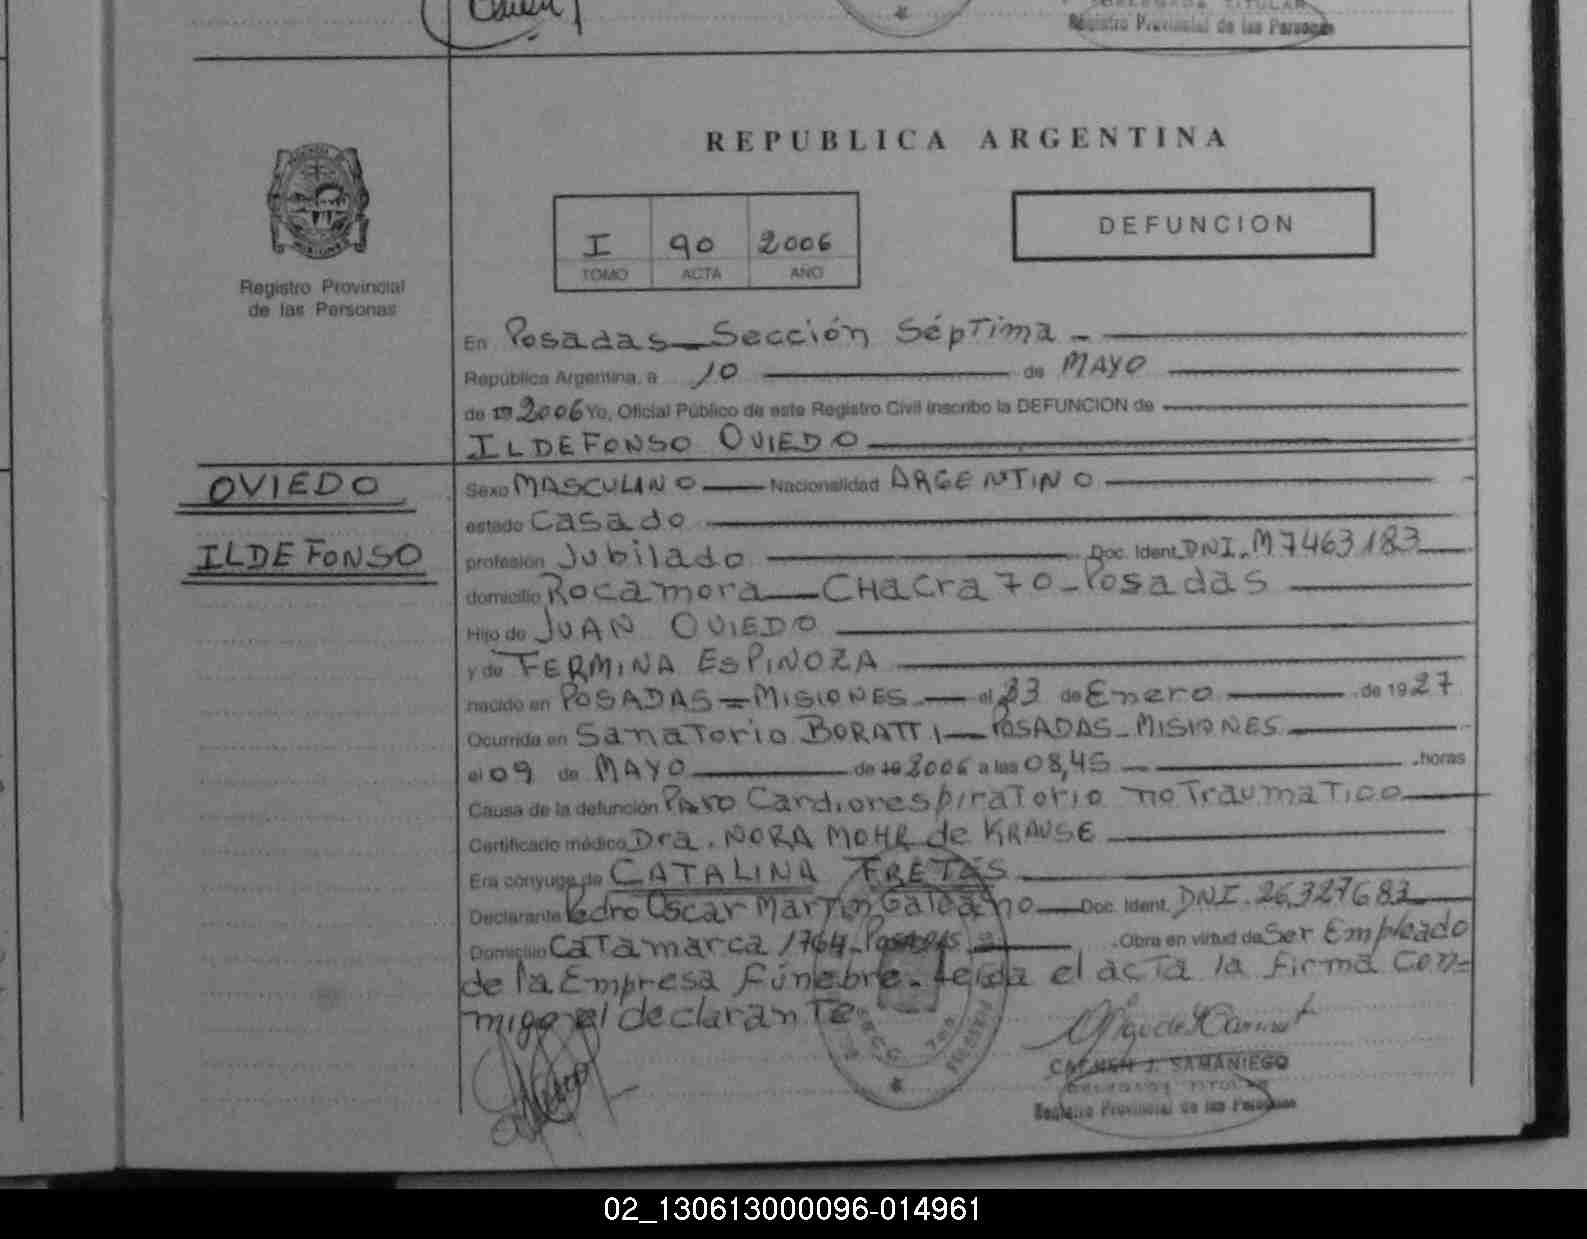 Registro Provincial de las Personas
REPUBLICA ARGENTINA
I 90 2006
TOMO ACTA AÑO
DEFUNCION
Registro Provincial
de las Personas
En Posadas - Sección Séptima -
República Argentina, a 10 de MAYO
de 19 2006 Yo, Oficial Público de este Registro Civil inscribo la DEFUNCION de
ILDEFONSO OVIEDO
OVIEDO
ILDEFONSO
Sexo MASCULINO Nacionalidad ARGENTINO
estado Casado
profesión Jubilado Doc. Ident. DNI. M7463183
domicilio Rocamora - CHacra 70 - Posadas
Hijo de JUAN OVIEDO
y de FERMINA ESPINOZA
nacido en POSADAS = MISIONES - el 23 de Enero de 1927
Ocurrida en Sanatorio BORATTI - POSADAS - MISIONES
el 09 de MAYO de 19 2006 a las 08,45 horas
Causa de la defunción Paro Cardiorespiratorio no Traumatico
Certificado médico Dra. NORA MOHR de KRAUSE
Era cónyuge de CATALINA FRETES
Declarante Pedro Oscar Martin Galeano Doc. Ident. DNI. 26,327683
Domicilio Catamarca 1764 - Posadas Obra en virtud de Ser Empleado
de la Empresa Fúnebre. Leida el acta la firma Con=
migo el declarante
CARMEN J. SAMANIEGO
DELEGADA TITULAR
Registro Provincial de las Personas
02_130613000096-014961